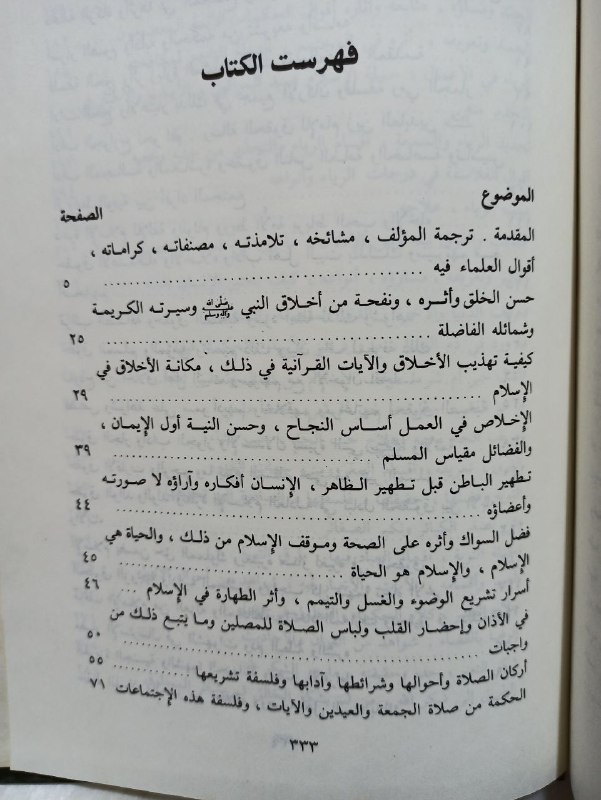 فهرست الكتاب
الموضوع
الصفحة
المقدمة . ترجمة المؤلف ، مشائخه ، تلامذته ، مصنفاته ، كراماته ،
أقوال العلماء فيه ........................................ ٥
حسن الخلق وأثـره ، ونفحة من أخلاق النبي ﷺ وسيرتـه الكريمـة
وشمائله الفاضلة ........................................ ٢٥
كيفيـة تهذيب الأخـلاق والآيات القـرآنية في ذلـك ، مكـانة الأخلاق في
الإسلام ........................................ ٢٩
الإخـلاص في العمـل أسـاس النجـاح ، وحسن النيـة أول الإيمـان ،
والفضائل مقياس المسلم ........................................ ٣٩
تطهير البـاطن قبل تـطهير الظـاهر ، الإنسـان أفكـاره وآراؤه لا صـورتـه
وأعضاؤه ........................................ ٤٤
فضل السواك وأثره على الصحة ومـوقف الإسلام من ذلـك ، والحياة هي
الإسلام ، والإسلام هو الحياة ........................................ ٤٥
أسرار تشريع الوضوء والغسل والتيمم ، وأثر الطهارة في الإسلام ... ٤٦
في الأذان وإحضـار القلب ولباس الصـلاة للمصلين ومـا يتبـع ذلـك من
واجبات ........................................ ٥٠
أركان الصلاة وأحوالها وشرائطها وآدابها وفلسفة تشريعها ............ ٥٥
الحكمة من صلاة الجمعة والعيدين والآيات ، وفلسفة هذه الإجتماعات ٧١
٣٣٣